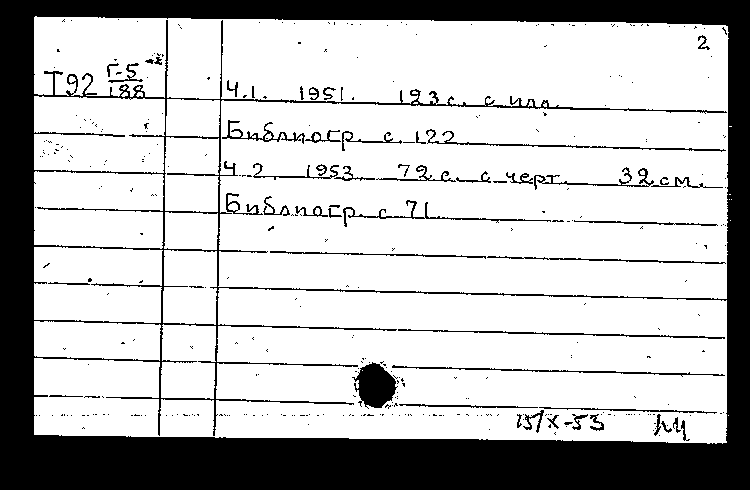 2
Т92 Г-5
188
Ч.1. 1951. 123 с. с илл.
Библиогр. с. 122
Ч 2. 1953 72 с. с черт. 32 см.
Библиогр. с 71
15/X-53